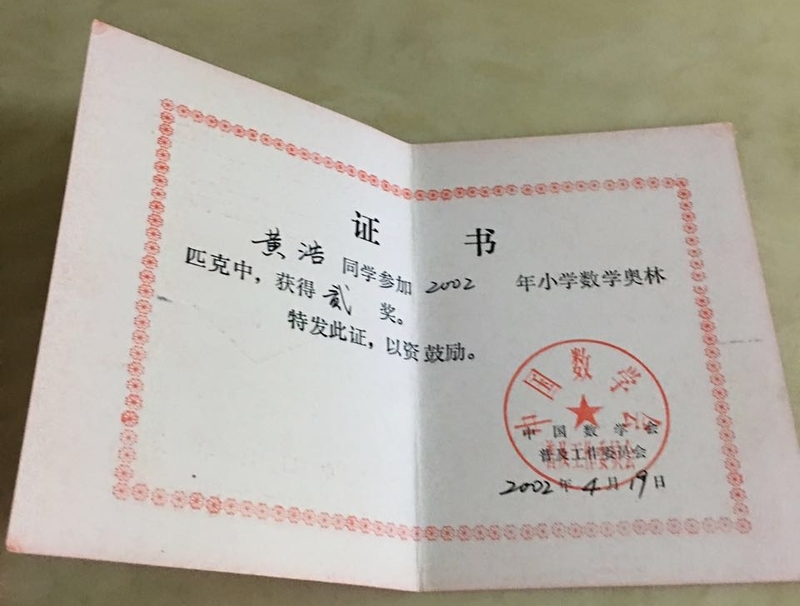 证 书
黄浩 同学参加 2002 年小学数学奥林
匹克中，获得 贰 奖。
特发此证，以资鼓励。
中国数学会
普及工作委员会
中国数学会
普及工作委员会
2002年4月19日